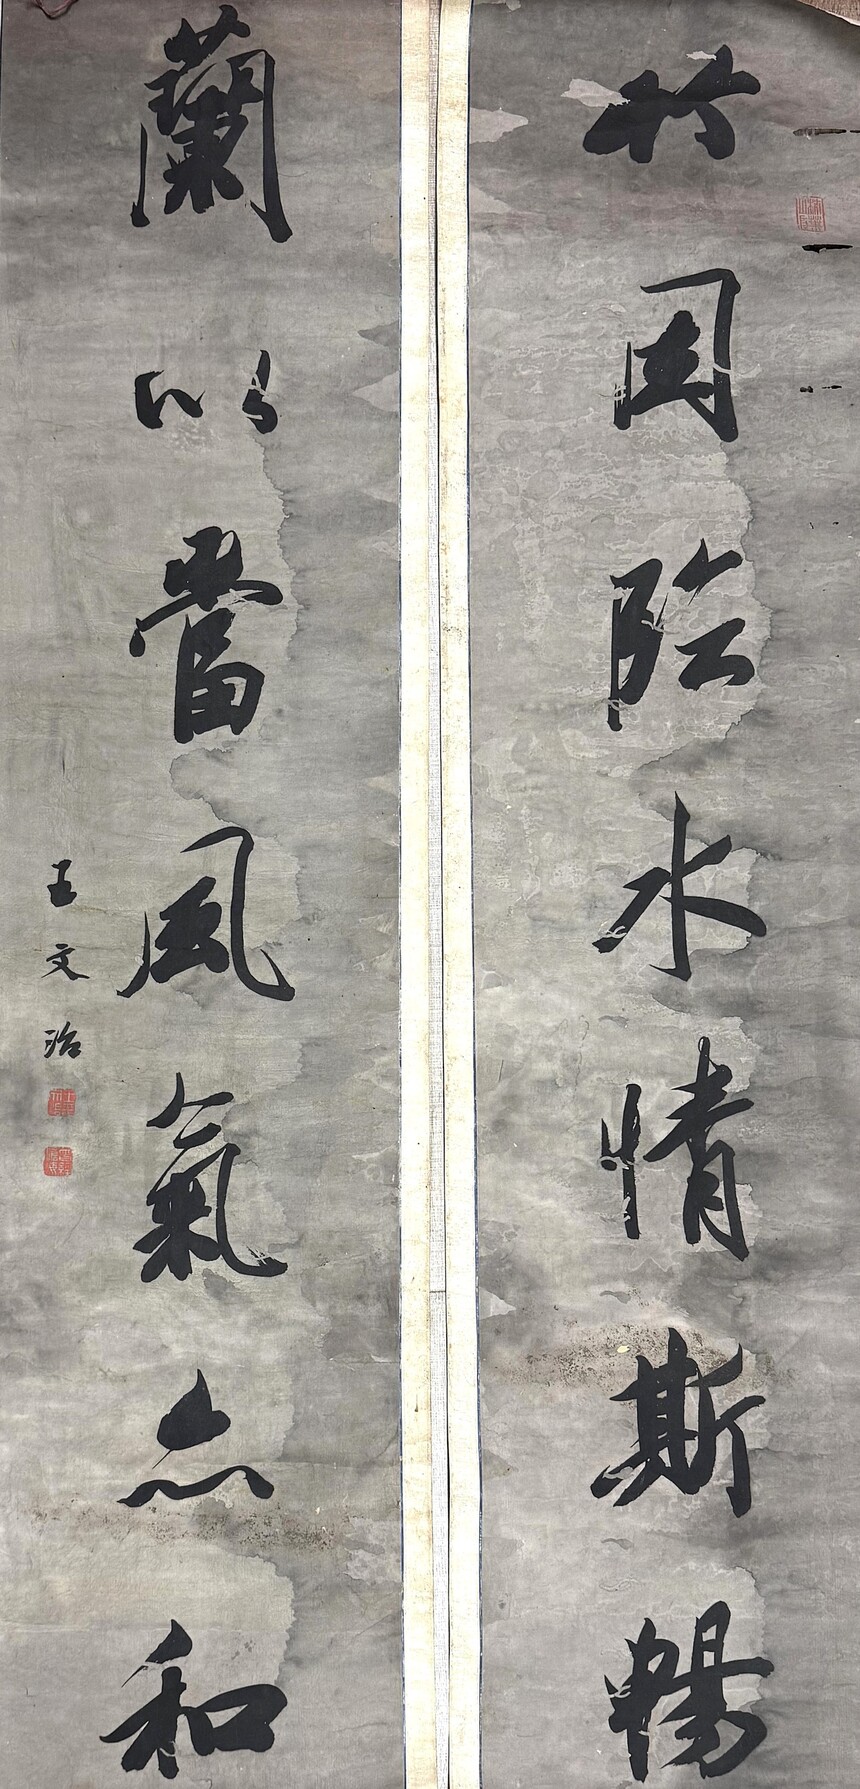 竹因陰水情斯暢
蘭以當風氣亦和
王文治